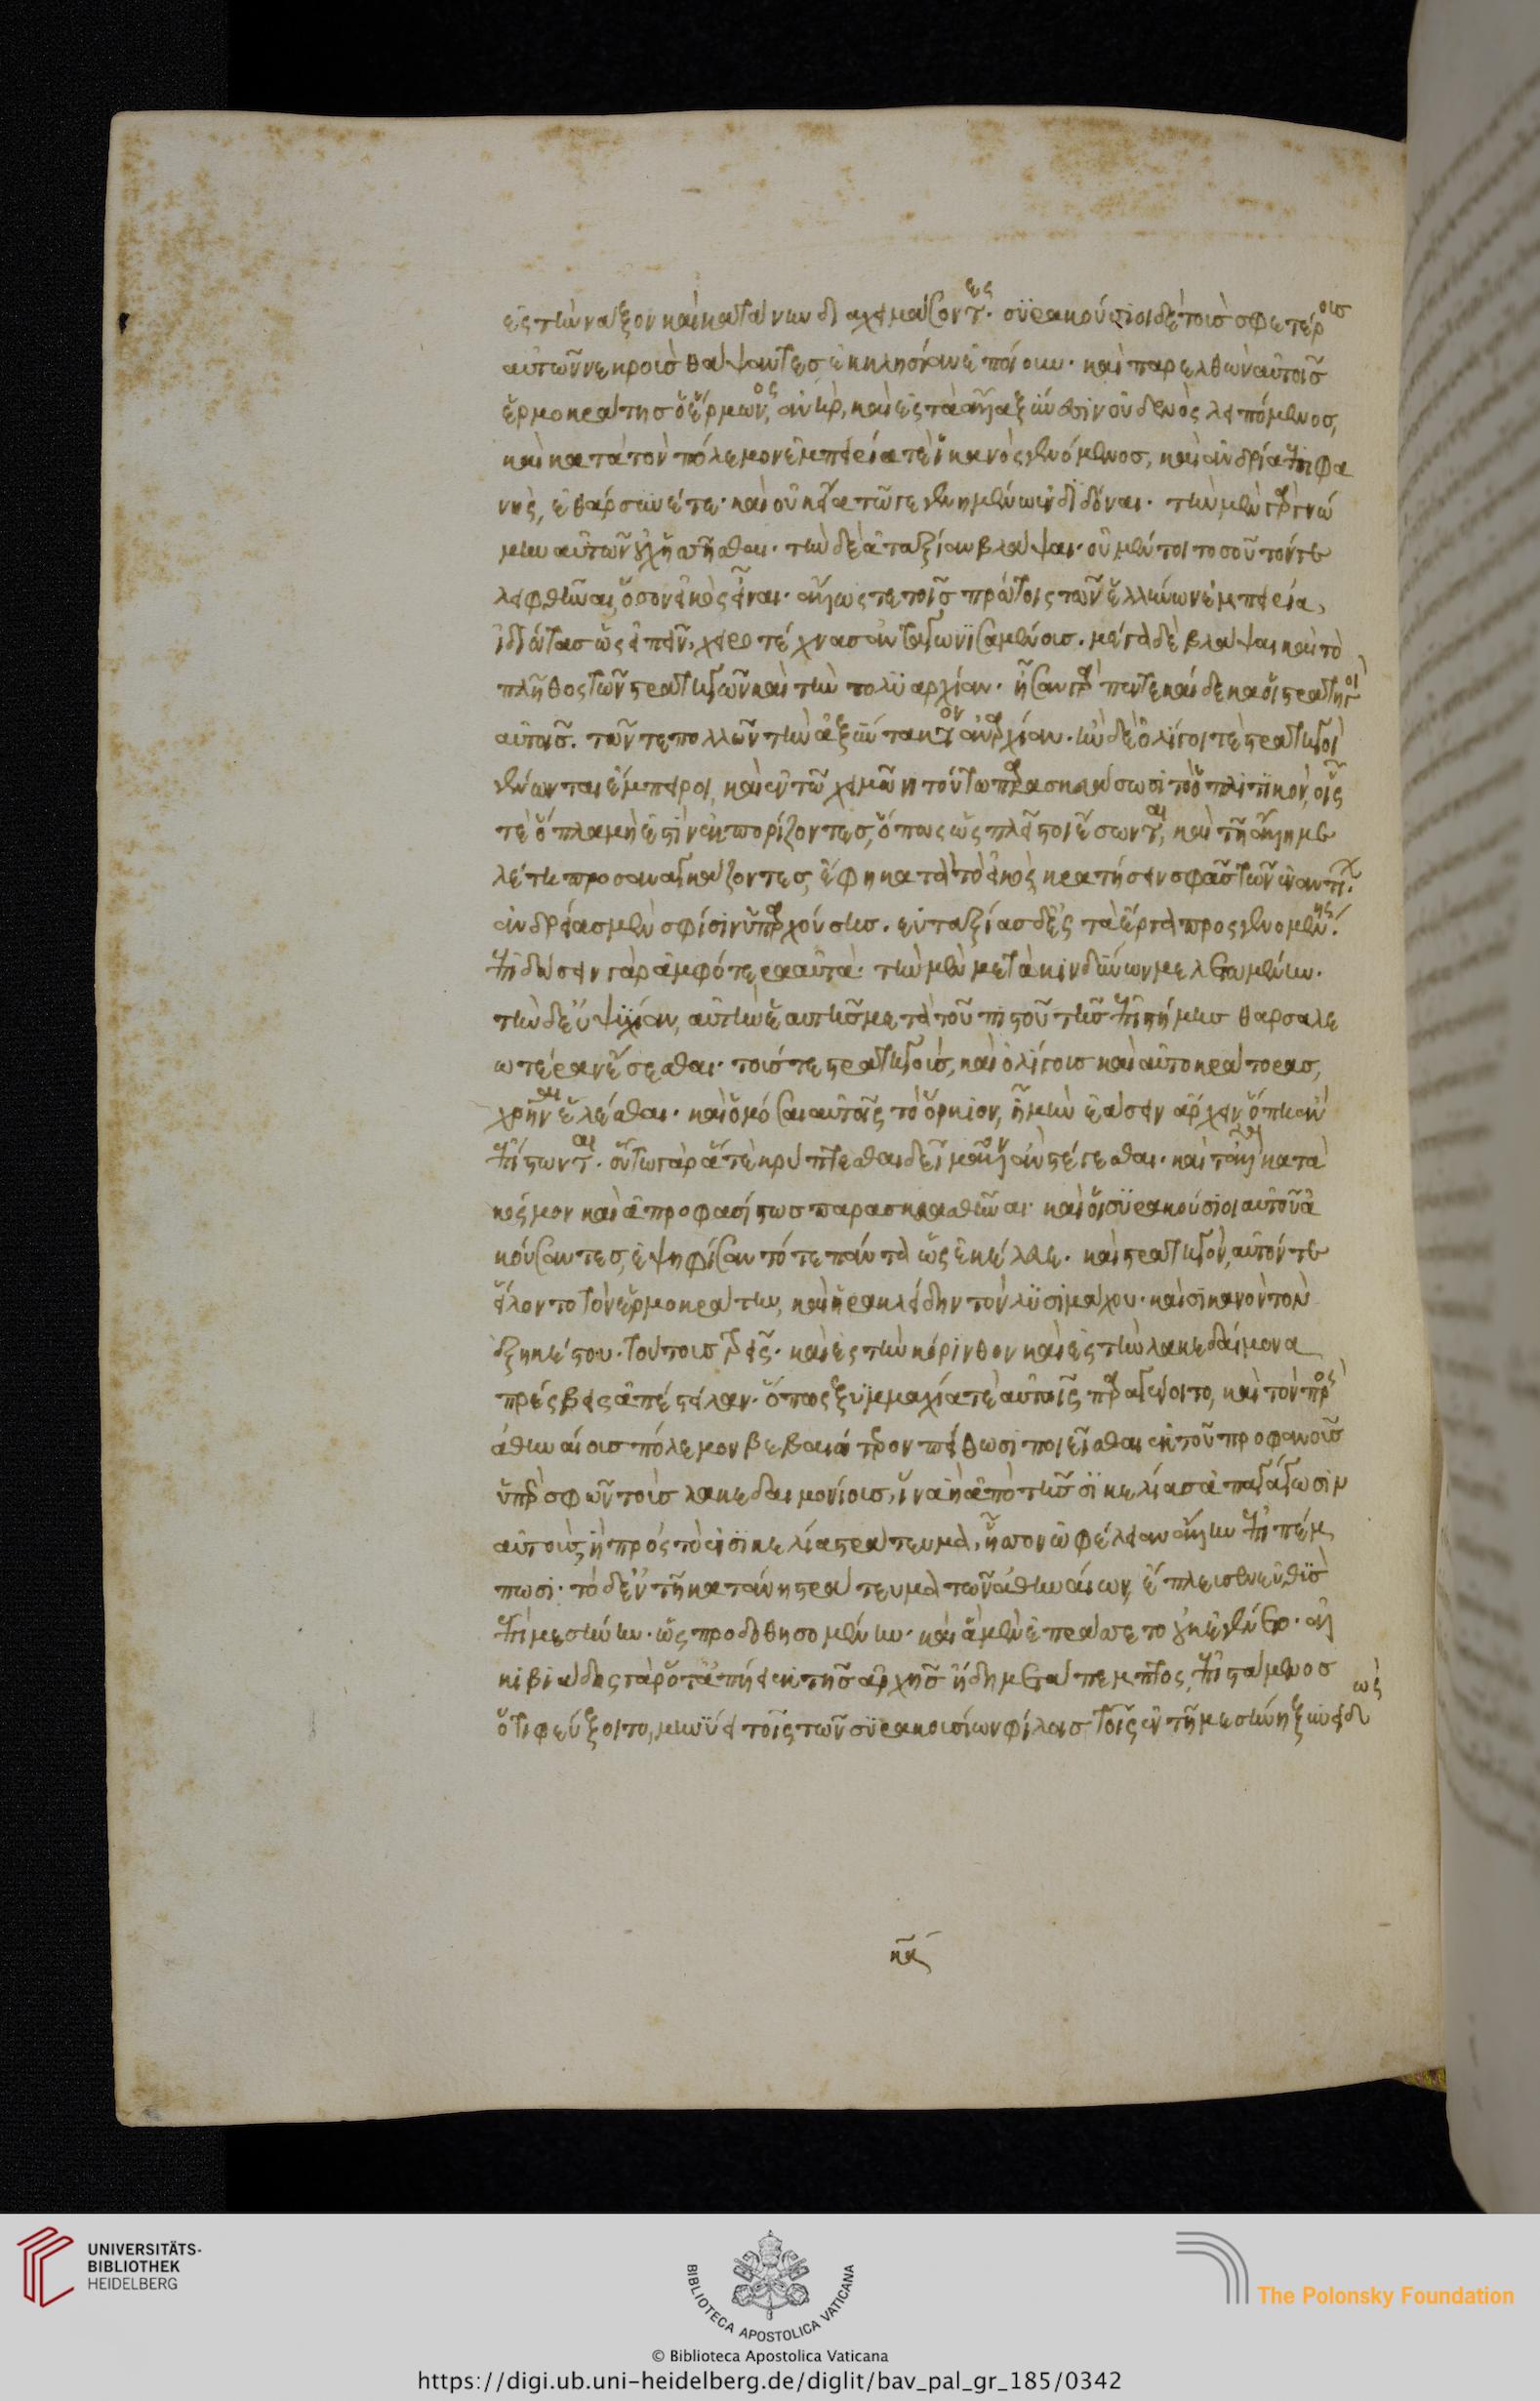 ἐς τὴν νάξον καὶ κατάνην διαχειμάσοντες. συρακούσιοι δὲ τοὺς σφετέρους
αὐτῶν νεκροὺς θάψαντες ἐκκλησίαν ἐποίουν. καὶ παρελθὼν αὐτοῖς
ἑρμοκράτης ὁ ἕρμωνος, ἀνὴρ, καὶ ἐς τἆλλα ξύνεσιν οὐδενὸς λειπόμενος,
καὶ κατὰ τὸν πόλεμον ἐμπειρία τὲ ἱκανὸς γενόμενος, καὶ ἀνδρία ἐπιφα
νὴς, ἐθάρσυνέ τε. καὶ οὐκ εἴα τῶ γεγενημένω ἐνδιδόναι. τὴν μὲν γὰρ γνώ
μην αὐτῶν οὐχ ἡσσῆσθαι. τὴν δὲ ἀταξίαν βλάψαι. οὐ μέντοι τοσοῦτόν γε
λειφθῆναι, ὅσον εἰκὸς εἶναι. ἄλλως τε τοῖς πρώτοις τῶν ἑλλήνων ἐμπειρία,
ἰδιώτας ὡς εἰπεῖν, χειροτέχνας ἀνταγωνισαμένους. μέγα δὲ βλάψαι καὶ τὸ
πλῆθος τῶν στρατηγῶν καὶ τὴν πολυαρχίαν. ἦσαν γὰρ πεντεκαίδεκα οἱ στρατηγοὶ
αὐτοῖς. τῶν τε πολλῶν τὴν ἀξύντακτον ἀναρχίαν. ἢν δὲ ὀλίγοι τὲ στρατηγοὶ
γένωνται ἔμπειροι, καὶ ἐν τῶ χειμῶνι τούτω παρασκευάσωσι τὸ ὁπλιτικὸν, οἷς
τὲ ὅπλα μὴ ἔστιν ἐκπορίζοντες, ὅπως ὡς πλεῖστοι ἔσονται, καὶ τῆ ἄλλη με
λέτη προσαναγκάζοντες, ἔφη κατὰ τὸ εἰκὸς κρατήσειν σφᾶς τῶν ἐναντίων.
ἀνδρείας μὲν σφίσιν ὑπαρχούσης. εὐταξίας δ' ἐς τὰ ἔργα προσγενομένης.
ἐπιδώσειν γὰρ ἀμφότερα αὐτά. τὴν μὲν μετὰ κινδύνων μελετωμένην.
τὴν δ' εὐψυχίαν, αὐτὴν ἑαυτῆς μετὰ τοῦ πιστοῦ τῆς ἐπιστήμης θαρσαλε
ωτέραν ἔσεσθαι. τούς τε στρατηγοὺς, καὶ ὀλίγους καὶ αὐτοκράτορας,
χρῆναι ἑλέσθαι. καὶ ὀμόσαι αὐτοῖς τὸ ὅρκιον, ἦ μὴν ἐάσειν ἄρχειν, ὅπη ἂν
ἐπίστωνται. οὕτω γὰρ ἅ τε κρύπτεσθαι δεῖ μᾶλλον ἂν στέγεσθαι. καὶ τἆλλα κατὰ
κόσμον καὶ ἀπροφασίστως παρασκευασθῆναι. καὶ οἱ συρακούσιοι αὐτοῦ ἀ
κούσαντες, ἐψηφίσαντό τε πάντα ὡς ἐκέλευε. καὶ στρατηγὸν, αὐτόν τε
εἵλοντο τὸν ἑρμοκράτην, καὶ ἡρακλείδην τὸν λυσιμάχου. καὶ σικανὸν τὸν
ἐξηκέστου. τούτους τρεῖς. καὶ ἐς τὴν κόρινθον καὶ ἐς τὴν λακεδαίμονα
πρέσβεις ἀπέστειλαν. ὅπως ξυμμαχία τὲ αὐτοῖς παραγένοιτο, καὶ τὸν πρὸς
ἀθηναίους πόλεμον βεβαιότερον πείθωσι ποιεῖσθαι ἐκ τοῦ προφανοῦς
ὑπὲρ σφῶν τοὺς λακεδαιμονίους, ἵνα ἢ ἀπὸ τῆς σικελίας ἀπαγάγωσιν
αὐτοὺς, ἢ πρὸς τὸ ἐν σικελία στράτευμα, ἧσσον ὠφέλειαν ἄλλην ἐπιπέμ
πωσι. τὸ δ' ἐν τῆ κατάνη στράτευμα τῶν ἀθηναίων, ἔπλευσεν εὐθὺς
ἐπὶ μεσήνην. ὡς προδοθησομένην. καὶ ἃ μὲν ἐπράσσετο οὐκ ἐγένετο. ἀλ
κιβιάδης γὰρ ὅτ' ἀπήει ἐκ τῆς ἀρχῆς ἤδη μετάπεμπτος, ἐπιστάμενος
ὅτι φεύξοιτο, μηνύει τοῖς τῶν συρακουσίων φίλοις τοῖς ἐν τῆ μεσήνη ξυνειδὼς
κα
UNIVERSITÄTS-
BIBLIOTHEK
HEIDELBERG
BIBLIOTECA APOSTOLICA VATICANA
The Polonsky Foundation
© Biblioteca Apostolica Vaticana
https://digi.ub.uni-heidelberg.de/diglit/bav_pal_gr_185/0342